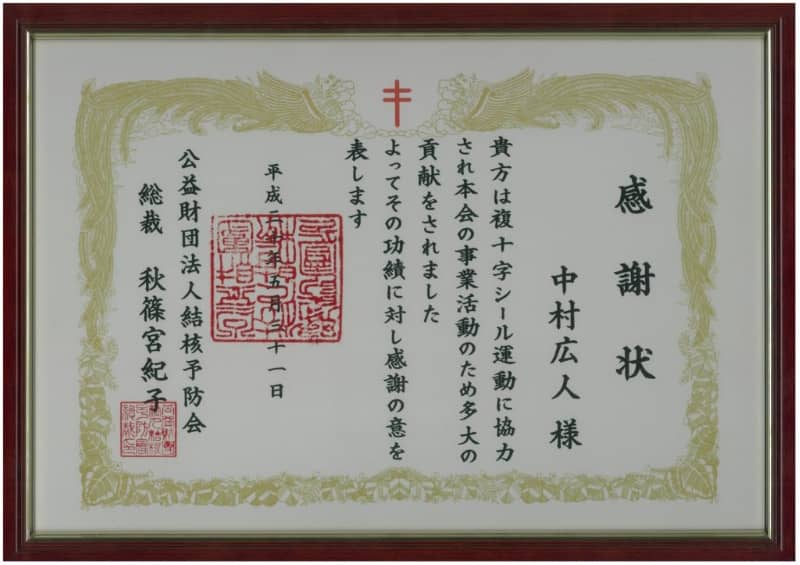 感謝状
中村広人様
貴方は複十字シール運動に協力
され本会の事業活動のため多大の
貢献をされました
よってその功績に対し感謝の意を
表します
平成 年五月三十一日
公益財団法人結核予防会
総裁 秋篠宮紀子